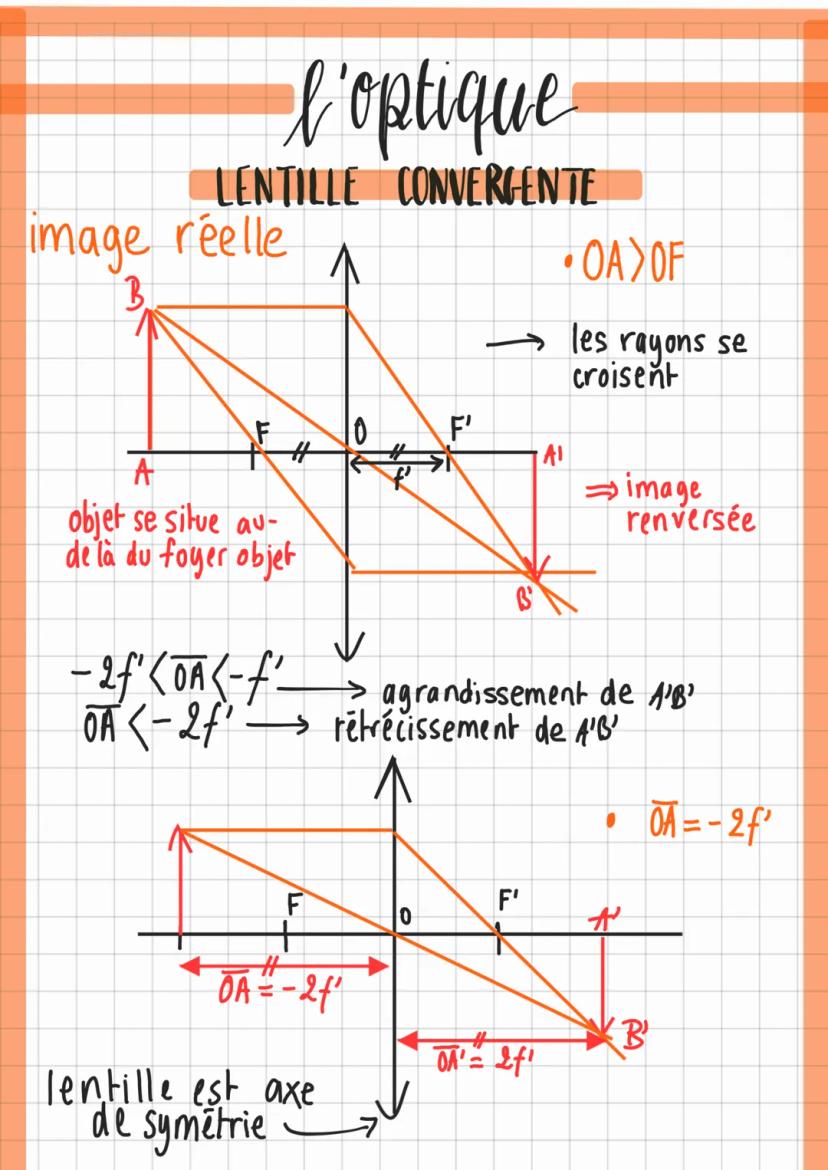 l'optique
LENTILLE CONVERGENTE
image réelle
• OA>OF
B
→ les rayons se
croisent
F
O
F'
A
f'
A'
objet se situe au-
delà du foyer objet
⇒ image
renversée
B'
-2f' < OA < -f' → agrandissement de A'B'
OA < -2f' → rétrécissement de A'B'
• OA = -2f'
F
O
F'
A'
OA = -2f'
B'
OA' = 2f'
lentille est axe
de symétrie →